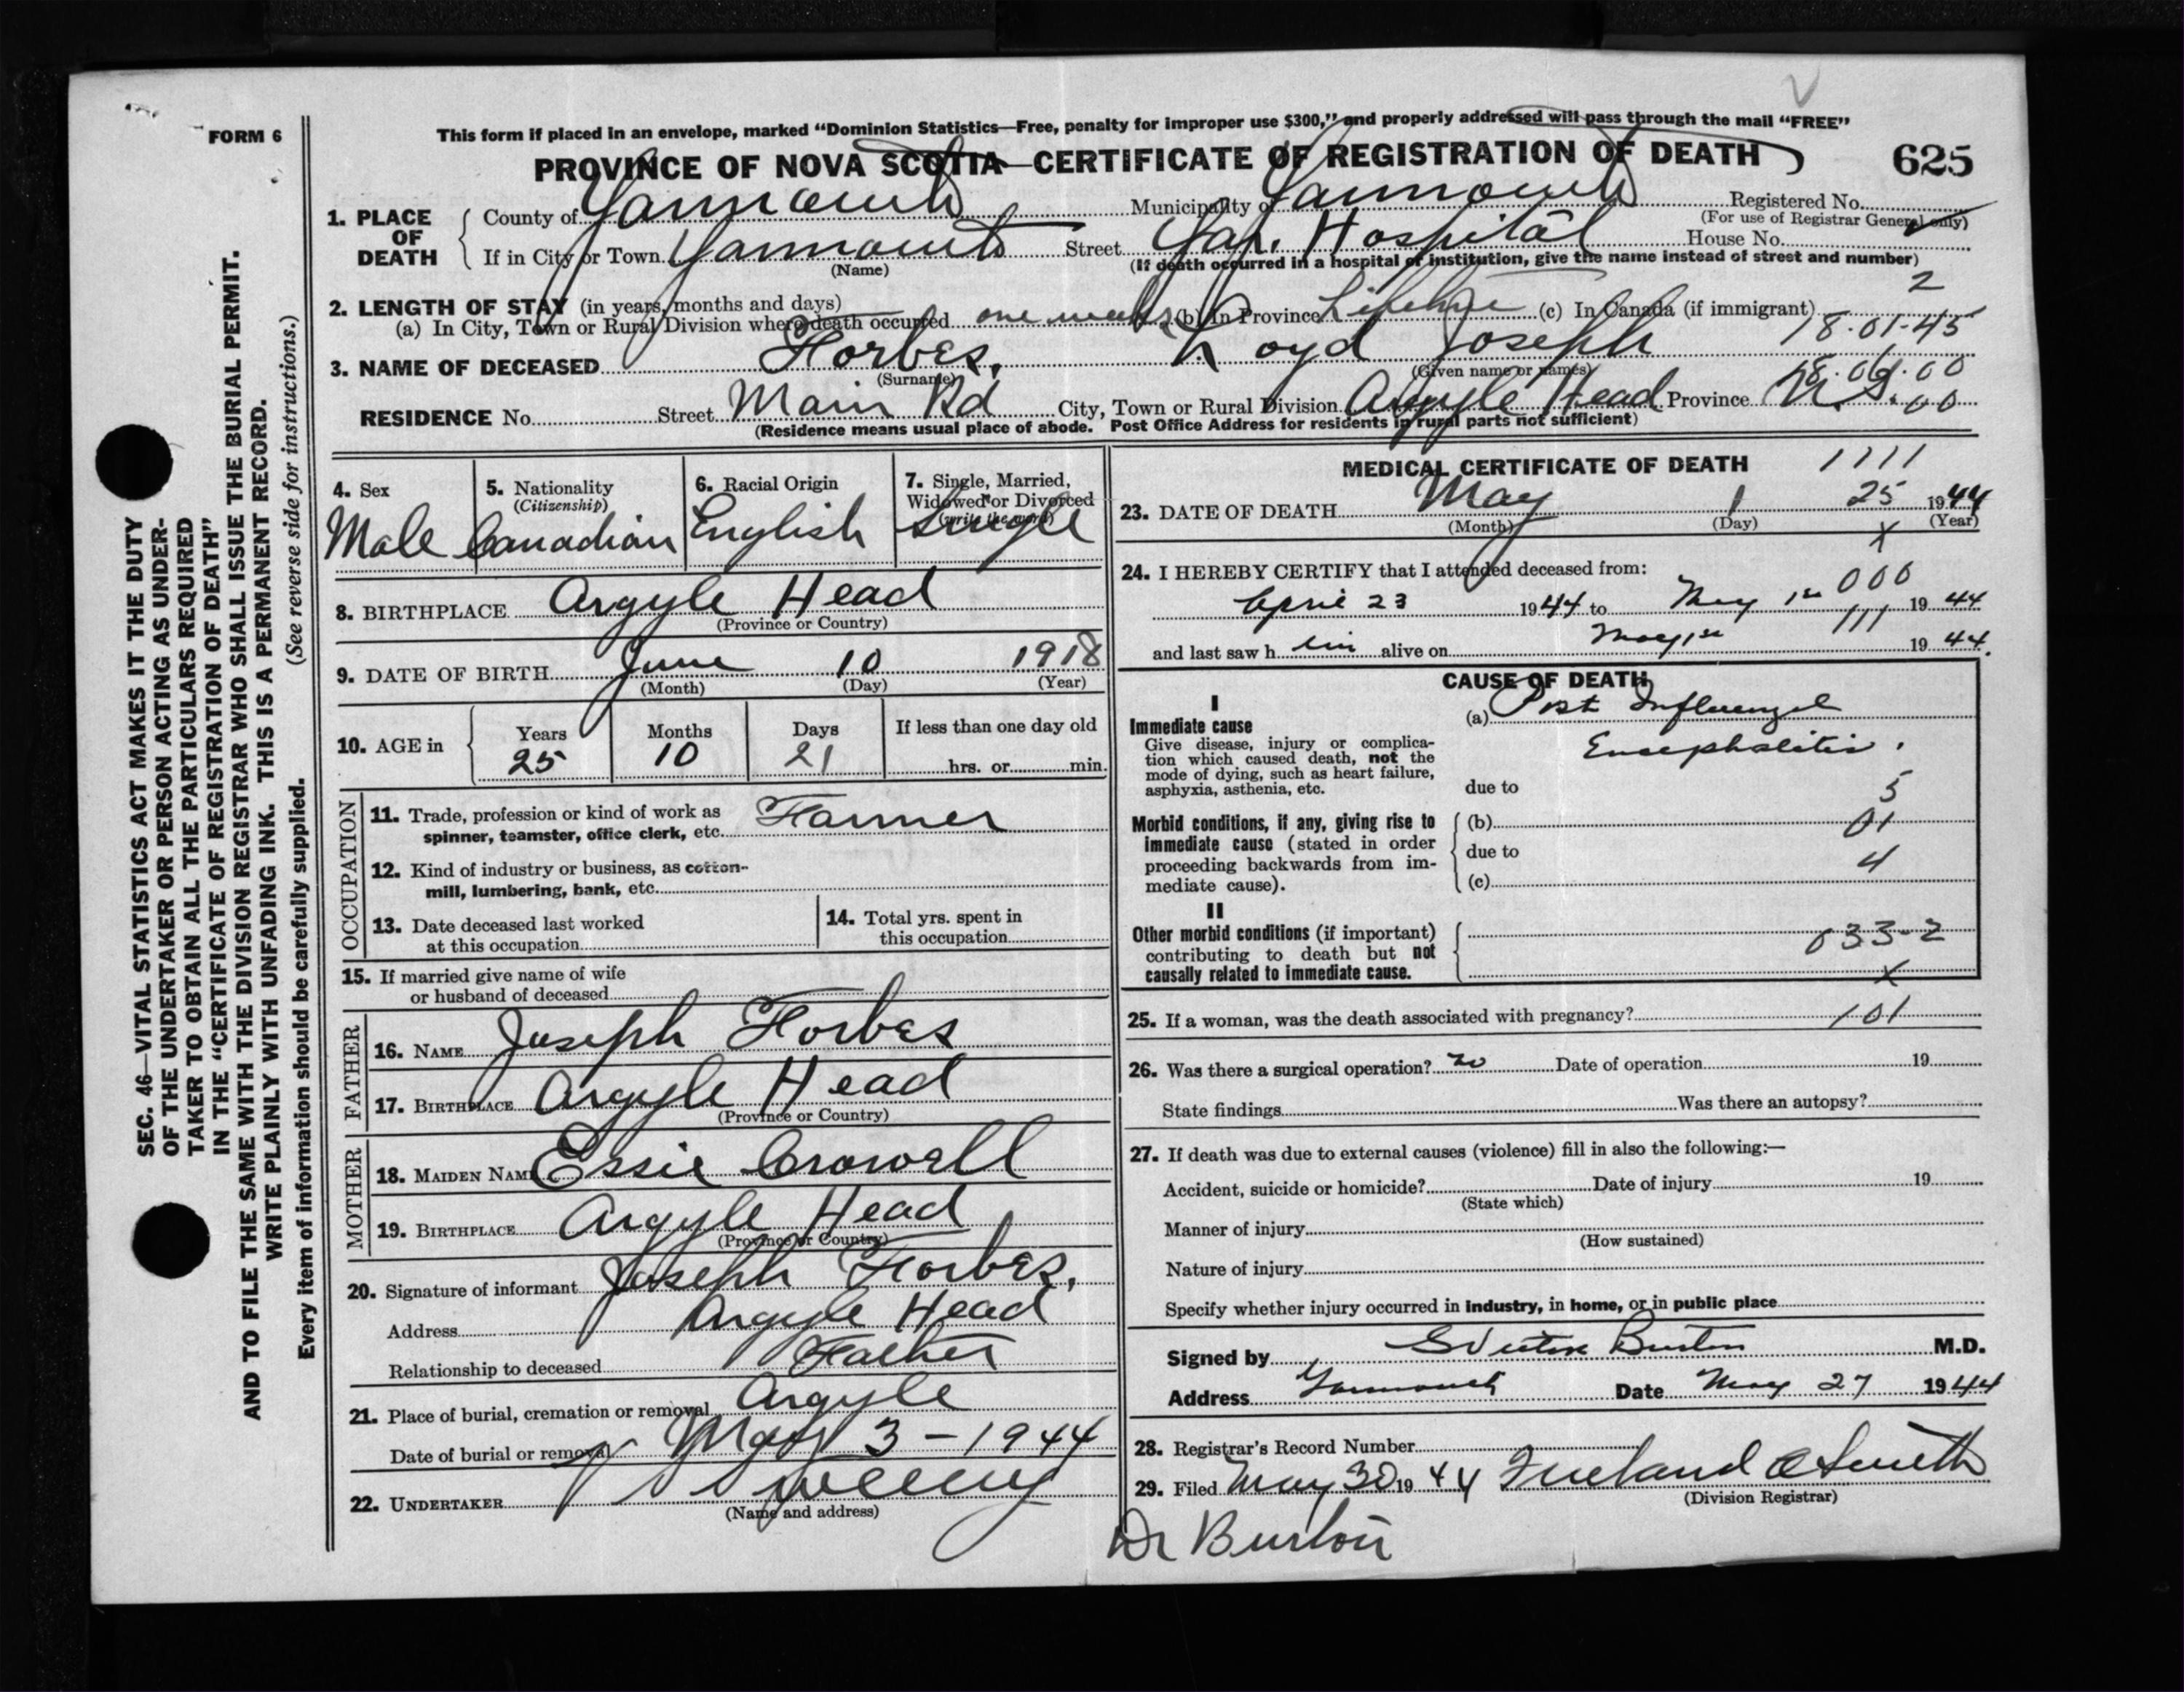 FORM 6
This form if placed in an envelope, marked “Dominion Statistics—Free, penalty for improper use $300,” and properly addressed will pass through the mail “FREE”
PROVINCE OF NOVA SCOTIA—CERTIFICATE OF REGISTRATION OF DEATH 625
1. PLACE OF DEATH
County of Yarmouth Municipality of Yarmouth Registered No.
(For use of Registrar General only)
If in City or Town Yarmouth Street Yar. Hospital House No.
(Name) (If death occurred in a hospital or institution, give the name instead of street and number)
2
2. LENGTH OF STAY (in years, months and days)
(a) In City, Town or Rural Division where death occurred one week (b) In Province Lifetime (c) In Canada (if immigrant)
18-01-45
3. NAME OF DECEASED Forbes, Loyd Joseph
(Surname) (Given name or names)
18.06.00
RESIDENCE No. Street Main Rd City, Town or Rural Division Argyle Head Province N.S. 00
(Residence means usual place of abode. Post Office Address for residents in rural parts not sufficient)
4. Sex
Male
5. Nationality
(Citizenship)
Canadian
6. Racial Origin
English
7. Single, Married,
Widowed or Divorced
(write the word)
Single
8. BIRTHPLACE Argyle Head
(Province or Country)
9. DATE OF BIRTH June 10 1918
(Month) (Day) (Year)
10. AGE in
Years Months Days If less than one day old
25 10 21 hrs. or min.
OCCUPATION
11. Trade, profession or kind of work as
spinner, teamster, office clerk, etc. Farmer
12. Kind of industry or business, as cotton-
mill, lumbering, bank, etc.
13. Date deceased last worked
at this occupation
14. Total yrs. spent in
this occupation
15. If married give name of wife
or husband of deceased
FATHER
16. NAME Joseph Forbes
17. BIRTHPLACE Argyle Head
(Province or Country)
MOTHER
18. MAIDEN NAME Essie Crowell
19. BIRTHPLACE Argyle Head
(Province or Country)
20. Signature of informant Joseph Forbes,
Address Argyle Head
Relationship to deceased Father
21. Place of burial, cremation or removal Argyle
Date of burial or removal May 3 - 1944
22. UNDERTAKER Sweeny
(Name and address)
MEDICAL CERTIFICATE OF DEATH 1111
23. DATE OF DEATH May 1 25 1944
(Month) (Day) (Year)
X
24. I HEREBY CERTIFY that I attended deceased from:
000
April 23 1944 to May 1st 1944
111
and last saw him alive on May 1st 1944.
CAUSE OF DEATH
I
Immediate cause
Give disease, injury or complica-
tion which caused death, not the
mode of dying, such as heart failure,
asphyxia, asthenia, etc.
(a) Post Influenzal
Encephalitis.
due to 5
Morbid conditions, if any, giving rise to
immediate cause (stated in order
proceeding backwards from im-
mediate cause).
(b) 01
due to 4
(c)
II
Other morbid conditions (if important)
contributing to death but not
causally related to immediate cause.
033-2
X
25. If a woman, was the death associated with pregnancy? 101
26. Was there a surgical operation? no Date of operation 19
State findings Was there an autopsy?
27. If death was due to external causes (violence) fill in also the following:—
Accident, suicide or homicide? Date of injury 19
(State which)
Manner of injury
(How sustained)
Nature of injury
Specify whether injury occurred in industry, in home, or in public place
Signed by Burton M.D.
Address Yarmouth Date May 27 1944
28. Registrar's Record Number
29. Filed May 30 1944 Smith
(Division Registrar)
Dr Burton
SEC. 46—VITAL STATISTICS ACT MAKES IT THE DUTY
OF THE UNDERTAKER OR PERSON ACTING AS UNDER-
TAKER TO OBTAIN ALL THE PARTICULARS REQUIRED
IN THE “CERTIFICATE OF REGISTRATION OF DEATH”
AND TO FILE THE SAME WITH THE DIVISION REGISTRAR WHO SHALL ISSUE THE BURIAL PERMIT.
WRITE PLAINLY WITH UNFADING INK. THIS IS A PERMANENT RECORD.
(See reverse side for instructions.)
Every item of information should be carefully supplied.